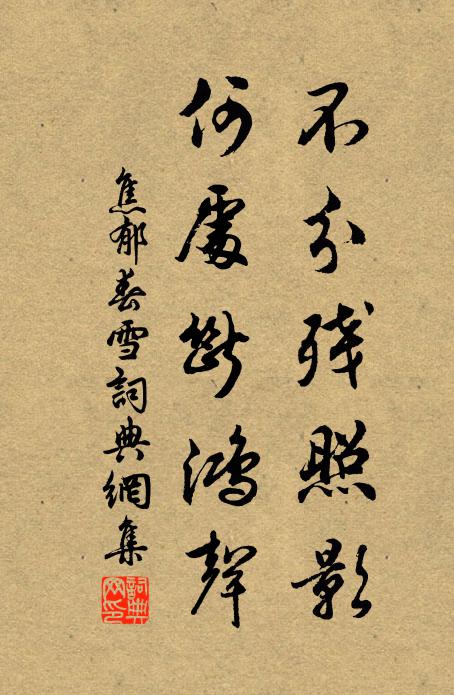 不分残照影
何處斷鴻聲
焦郁春雪詞典網集
詞典网印